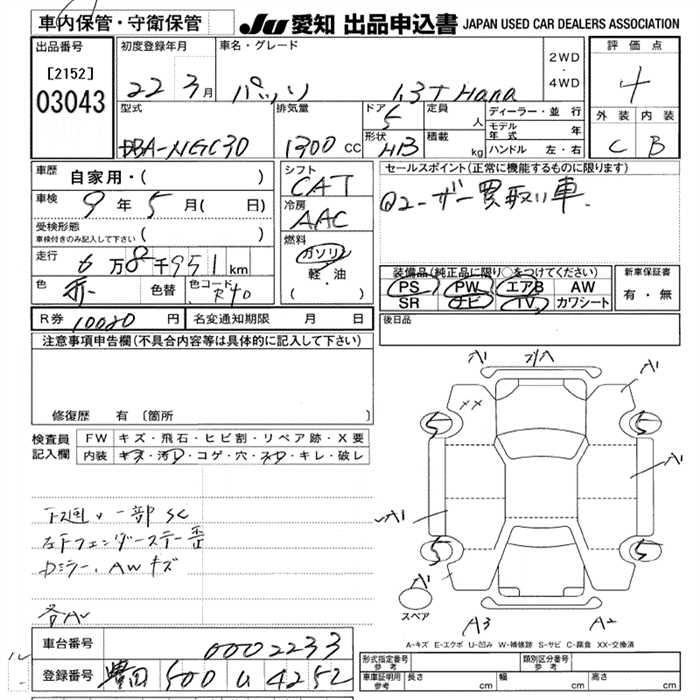 車内保管・守衛保管
JU 愛知 出品申込書 JAPAN USED CAR DEALERS ASSOCIATION
出品番号
[2152]
03043
初度登録年月
22 3月
車名・グレード
パッソ 1.3 Hana
2WD
・
4WD
評価点
4
外装 内装
C B
型式
DBA-NGC30
排気量
1300 CC
ドア
5
形状
HB
定員
人
積載
kg
ディーラー・並行
モデル年式 年
ハンドル 左・右
車歴
自家用・( )
車検 9年 5月( 日)
受検形態
車検付きのみ記入して下さい ( )
走行
6万8千951km
色 赤 色替 色コード R40
シフト
CAT
冷房
AAC
燃料
ガソリン
軽・油
( )
セールスポイント(正常に機能するものに限ります)
ユーザー買取り車.
装備品(純正品に限り○をつけてください)
PS PW エアB AW
SR ナビ TV カワシート
新車保証書
有・無
R券 10020 円 名変通知期限 月 日
後日品
注意事項申告欄(不具合内容等は具体的に記入して下さい)
修復歴 有 〔箇所 〕
検査員記入欄
FW キズ・飛石・ヒビ割・リペア跡・X要
内装 キズ・汚れ・コゲ・穴・スレ・キレ・破レ
下廻り一部SC
左Fフェンダーステー歪
カラー、AWキズ
各A
A1
A1
XX
S
S
A1
A1
S
S
A1
スペア
A3
A2
A-キズ E-エクボ U-凹み W-補修跡 S-サビ C-腐食 XX-交換済
車台番号 0002233
登録番号 豊田 500 u 4252
形式指定番号
参考
類別区分番号
参考
車庫証明用
参考
長さ cm 幅 cm 高さ cm